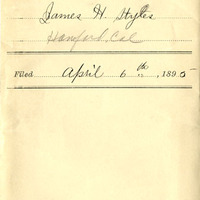 James H. Styles
Hanford, Cal
Filed April 6th, 1895